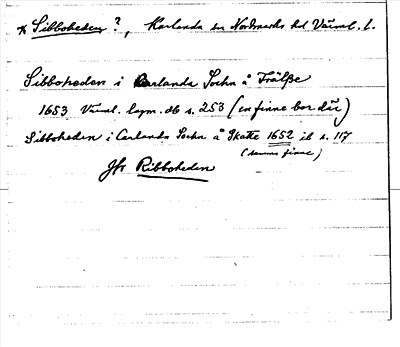 * Sibboheden ?, Karlanda sn Nordmarks hd Värml. l.
Sibboheden i Carlanda Sochn å Frälße
1653 Värml. lagm. db s. 253 (en finne bor där)
Sibboheden i Carlanda Sochn å Skatte 1652 ib s. 117
(samma finne)
Jfr Ribboheden